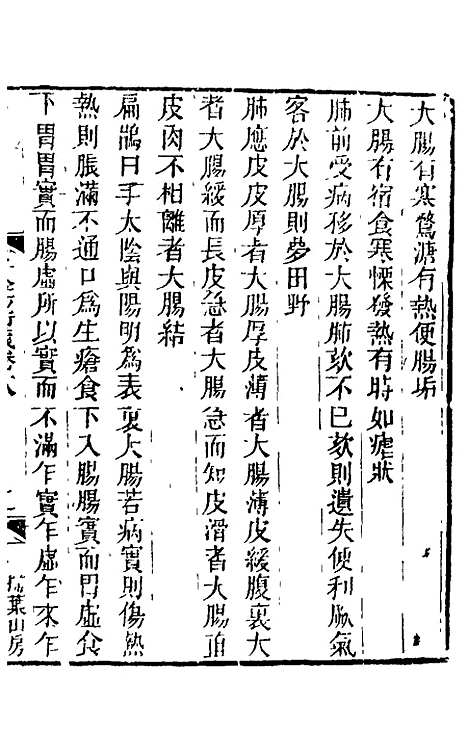 大腸有寒鶩溏有熱便腸垢
大腸有宿食寒慄發熱有時如瘧狀
肺前受病移於大腸肺欬不已欬則遺失便利厥氣
客於大腸則夢田野
肺應皮皮厚者大腸厚皮薄者大腸薄皮緩腹裏大
者大腸緩而長皮急者大腸急而短皮滑者大腸直
皮肉不相離者大腸結
扁鵲曰手太陰與陽明為表裏大腸若病實則傷熱
熱則脹滿不通口為生瘡食下入腸腸實而胃虛食
下胃胃實而腸虛所以實而不滿乍實乍虛乍來乍
掃葉山房